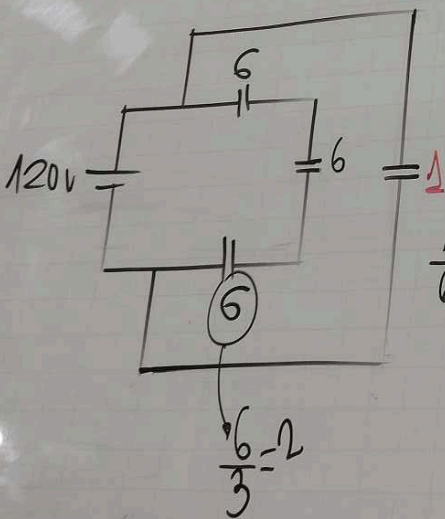 6
120v
6
1
6
6/3=2